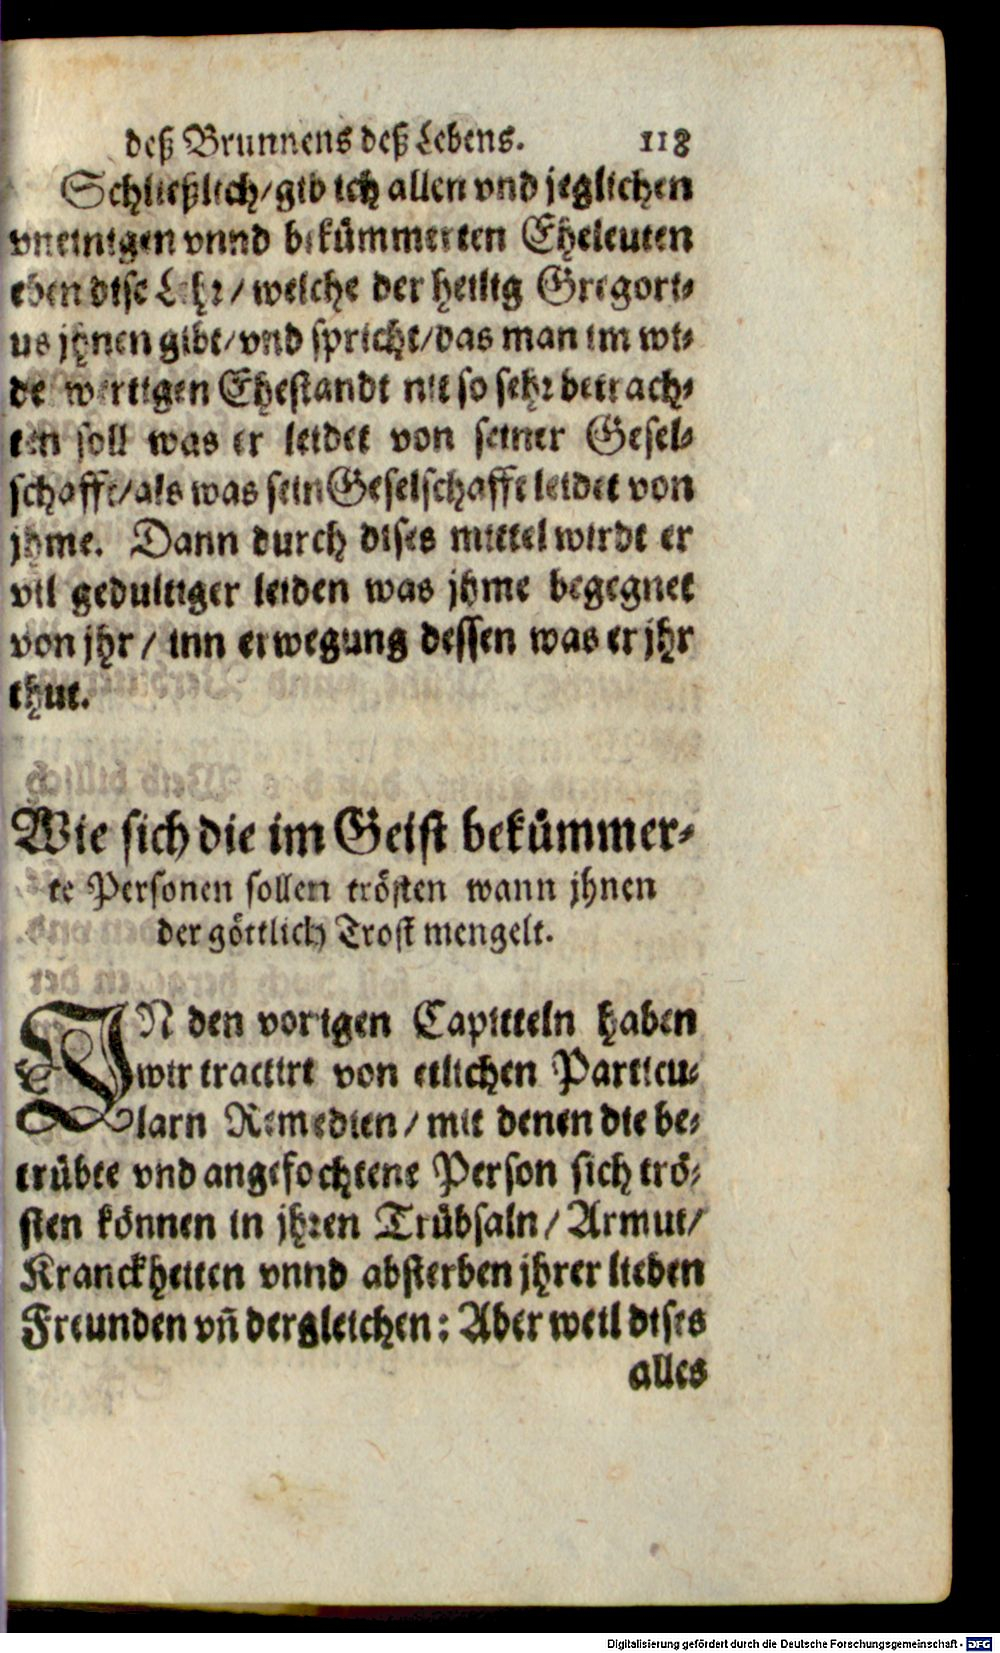 deß Brunnens deß Lebens. 118
Schließlich/ gib ich allen vnd jeglichen
vneinigen vnnd bekümmerten Eheleuten
eben dise Lehr/ welche der heilig Gregori-
us jhnen gibt/ vnd spricht/ das man im wi-
de wertigen Ehestandt nit so sehr betrach-
ten soll was er leidet von seiner Gesel-
schafft/ als was sein Geselschafft leidet von
jhme. Dann durch dises mittel wirdt er
vil gedultiger leiden was jhme begegnet
von jhr/ inn erwegung dessen was er jhr
thut.
Wie sich die im Geist bekümmer-
te Personen sollen trösten wann jhnen
der göttlich Trost mengelt.
IN den vorigen Capitteln haben
wir tractirt von etlichen Particu-
larn Remedien/ mit denen die be-
trübte vnd angefochtene Person sich trö-
sten können in jhren Trübsaln/ Armut/
Kranckheiten vnnd absterben jhrer lieben
Freunden vn̄ dergleichen: Aber weil dises
alles
Digitalisierung gefördert durch die Deutsche Forschungsgemeinschaft - DFG